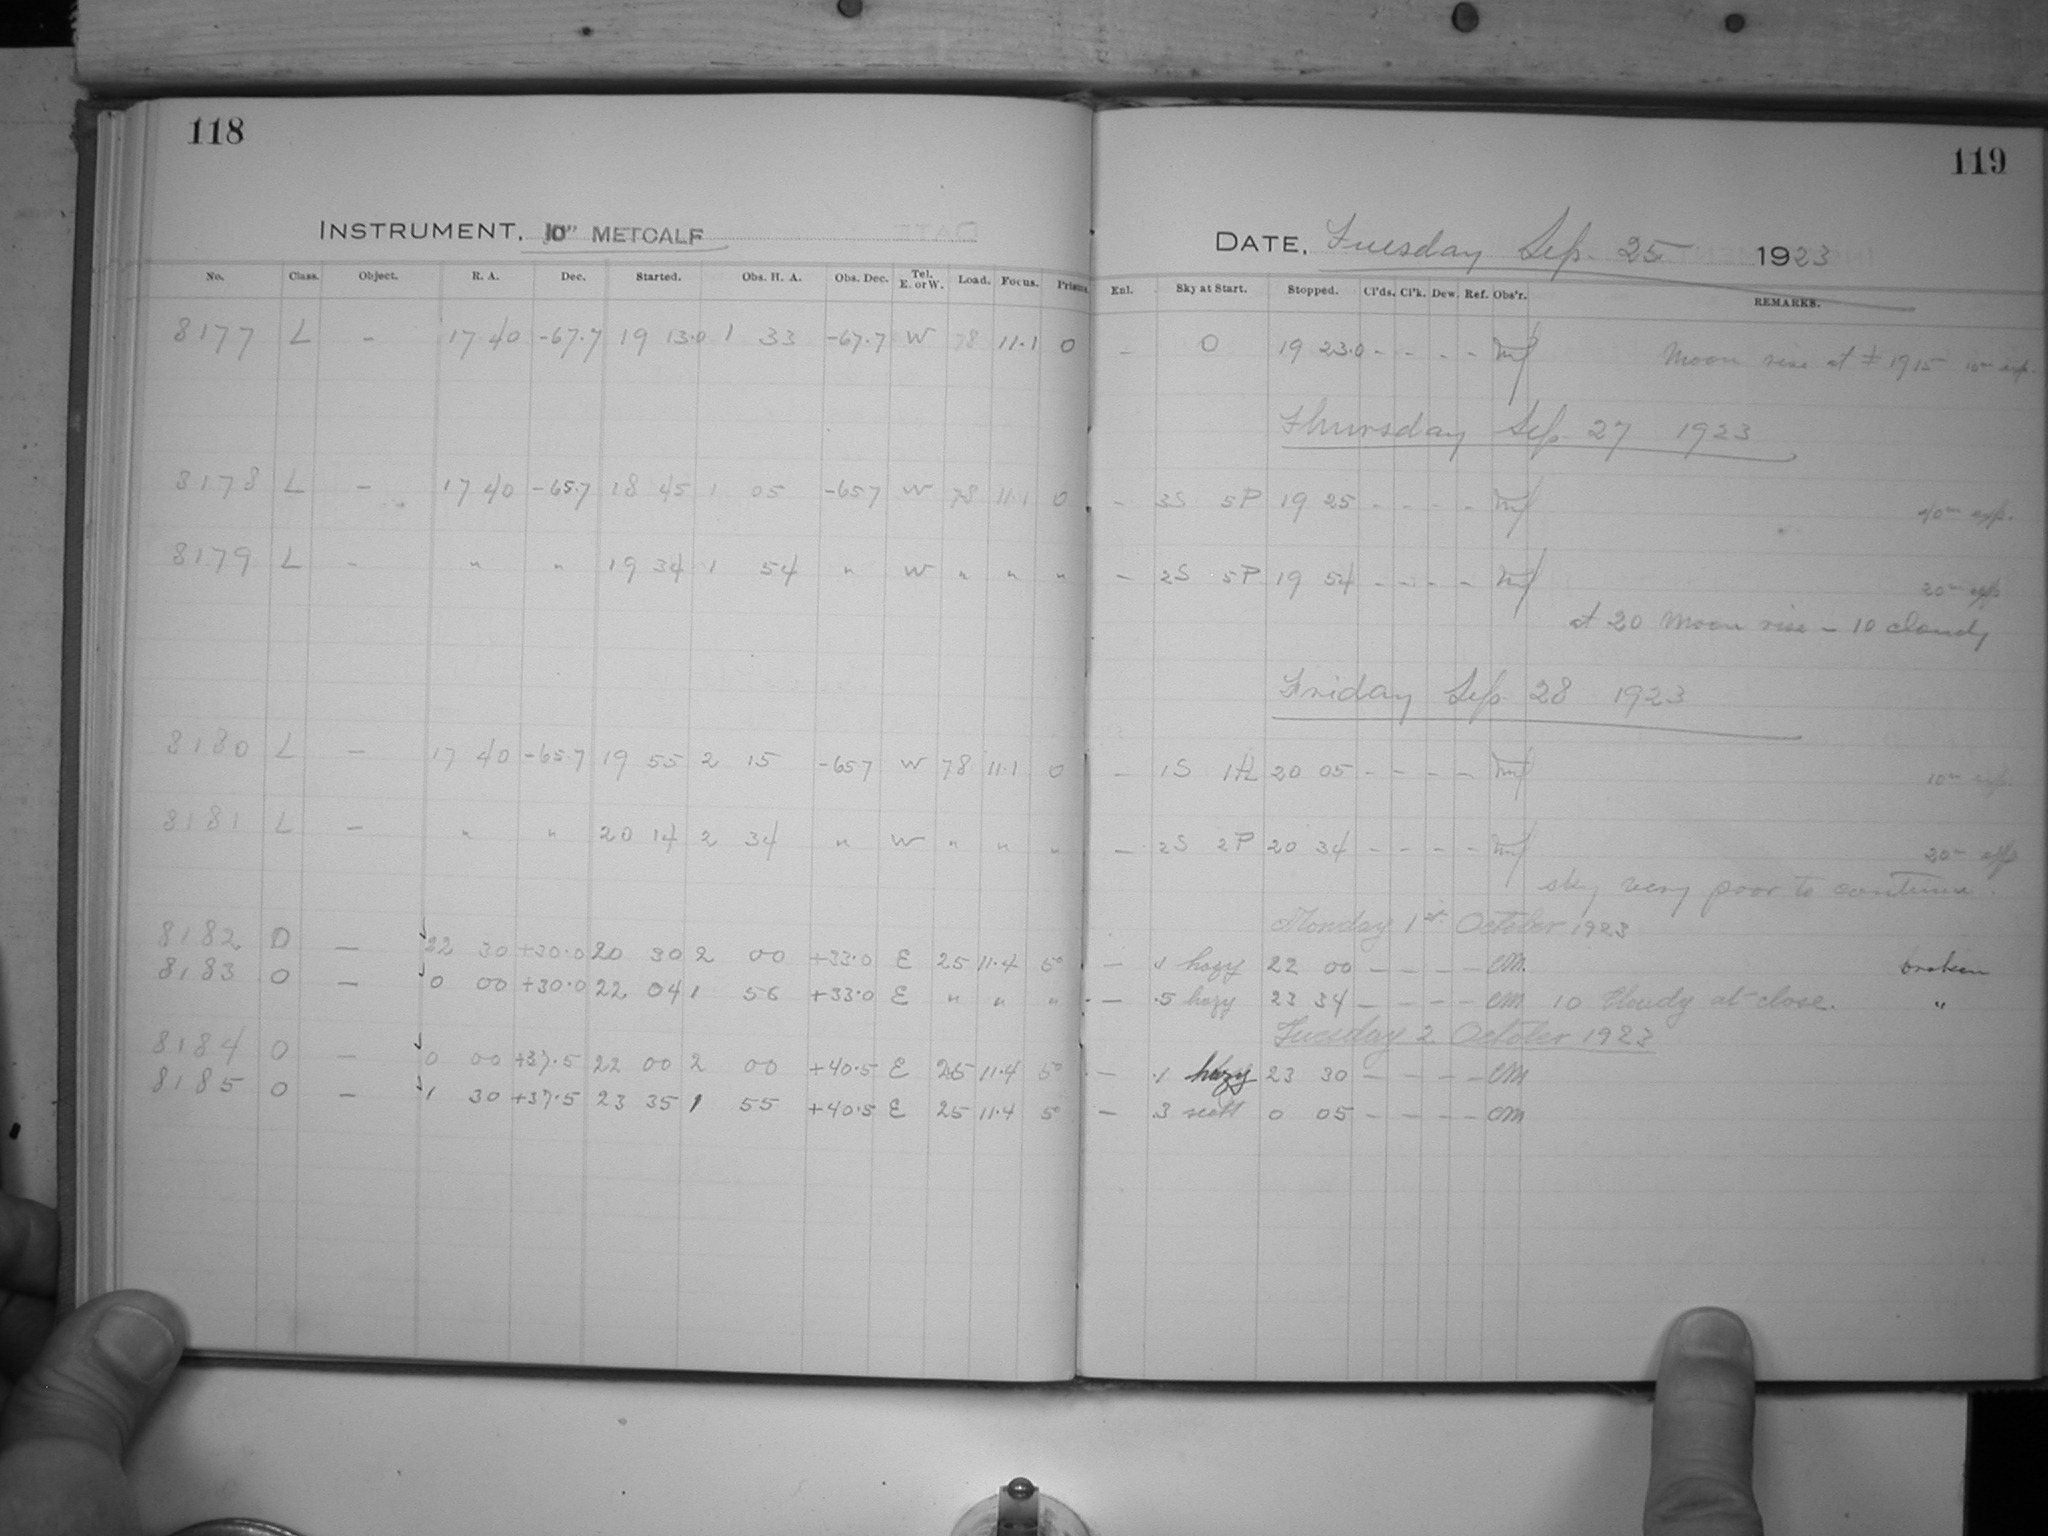 118
INSTRUMENT. 10" METCALF
No. Class. Object. R. A. Dec. Started. Obs. H. A. Obs. Dec. Tel. E. or W. Load. Focus. Prisms.
8177 L - 17 40 -67.7 19 13.0 1 33 -67.7 W 78 11.1 0
8178 L - 17 40 -65.7 18 45 1 05 -65.7 W 78 11.1 0
8179 L - " " 19 34 1 54 " W " " "
8180 L - 17 40 -65.7 19 55 2 15 -65.7 W 78 11.1 0
8181 L - " " 20 14 2 34 " W " " "
8182 O - 22 30 +30.0 20 30 2 00 +33.0 E 25 11.4 5°
8183 O - 0 00 +30.0 22 04 1 56 +33.0 E " " "
8184 O - 0 00 +37.5 22 00 2 00 +40.5 E 25 11.4 5°
8185 O - 1 30 +37.5 23 35 1 55 +40.5 E 25 11.4 5°
119
DATE. Tuesday Sep. 25 1923
Enl. Sky at Start. Stopped. Cl'ds. Cl'k. Dew. Ref. Obs'r. REMARKS.
- 0 19 23.0 - - - - Moon rise at ± 19 15 10m exp.
Thursday Sep. 27 1923
- 3S 5P 19 25 - - - - 40m exp.
- 2S 5P 19 54 - - - - 20m exp
at 20 Moon rise - 10 cloudy
Friday Sep. 28 1923
- 1S 20 05 - - - - 10m exp.
- 2S 2P 20 34 - - - - 20m exp
sky very poor to continue.
Monday 1st October 1923
- .1 hazy 22 00 - - - - CM. broken
- .5 hazy 23 34 - - - - CM 10 Cloudy at close. "
Tuesday 2 October 1923
- .1 hazy 23 30 - - - - CM
- .3 scatt 0 05 - - - - CM